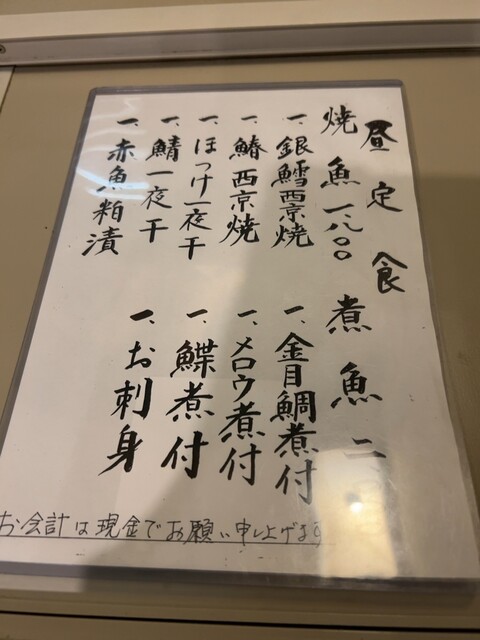 昼定食
焼魚 一、八〇〇
一、銀鱈西京焼
一、鰆西京焼
一、ほっけ一夜干
一、鯖一夜干
一、赤魚粕漬
煮魚 二
一、金目鯛煮付
一、メロウ煮付
一、鰈煮付
一、お刺身
お会計は現金でお願い申し上げます